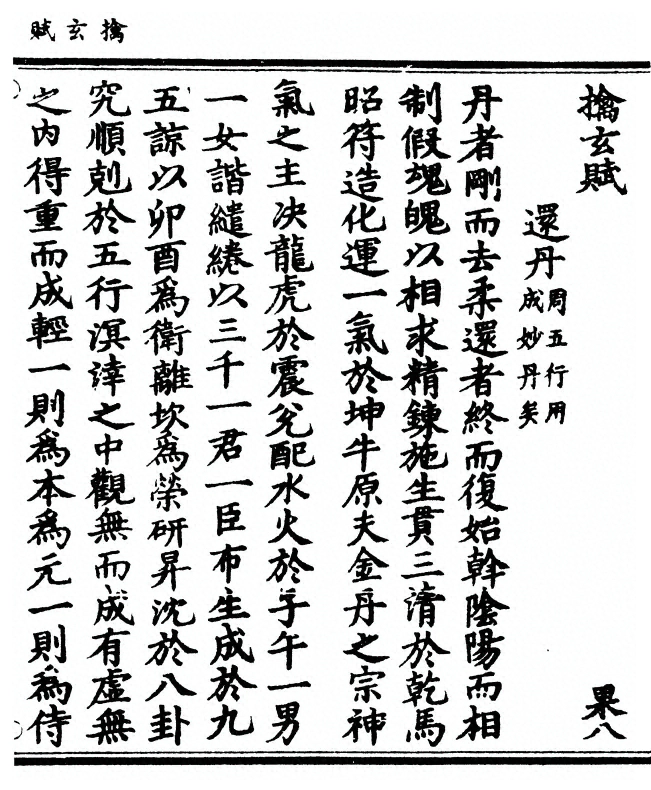 擒玄賦
擒玄賦 果八
還丹 周五行用
成妙丹矣
丹者剛而去柔還者終而復始斡陰陽而相
制假魂魄以相求精鍊施生貫三清於乾馬
昭符造化運一氣於坤牛原夫金丹之宗神
氣之主决龍虎於震兊配水火於子午一男
一女諧繾綣以三千一君一臣布生成於九
五諒以卯酉爲衛離坎爲榮研昇沈於八卦
究順剋於五行溟涬之中觀無而成有虛無
之內得重而成輕一則爲本爲元一則爲侍